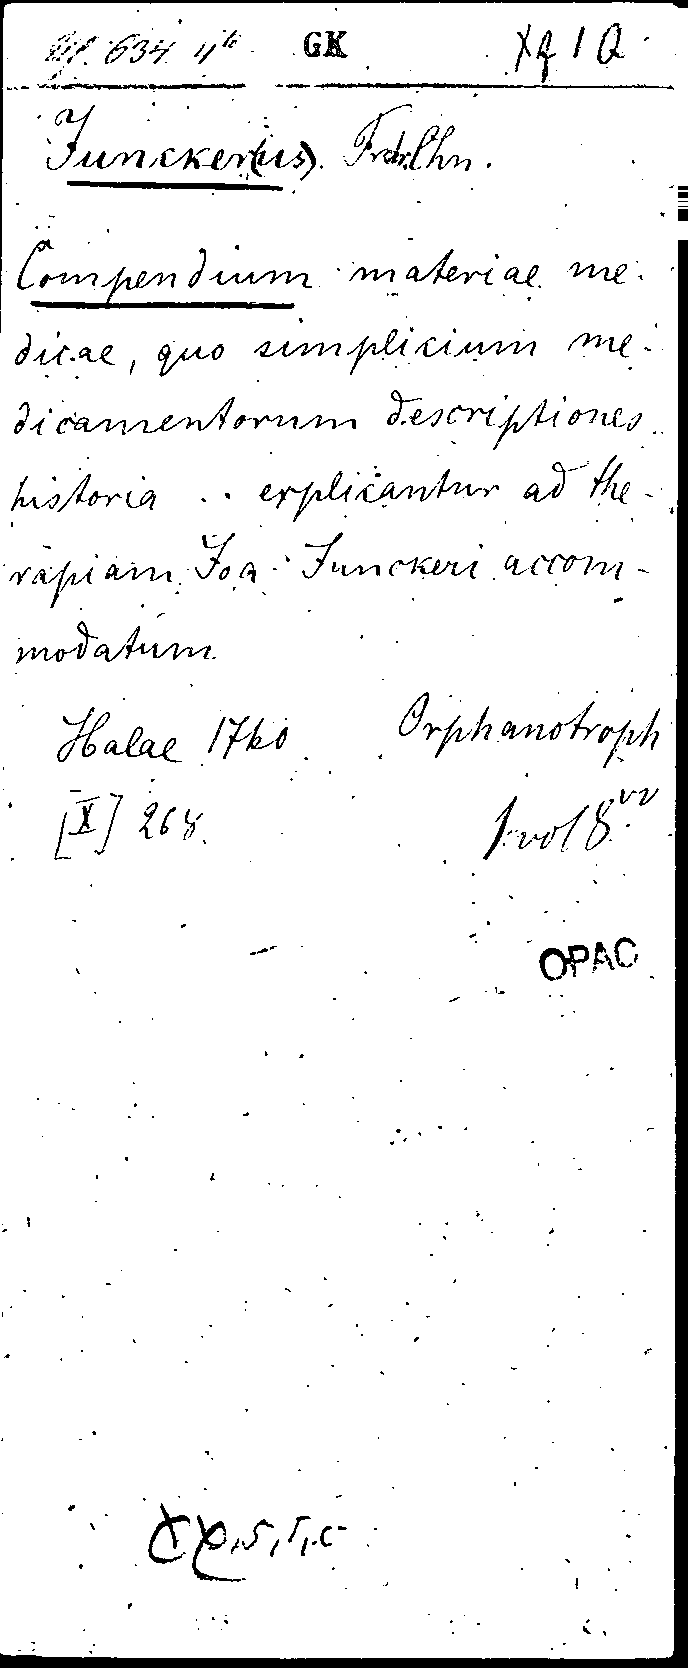 634 4to GK Xq 1 Q
Juncker(us). Frdr. Chn.
Compendium materiae me-
dicae, quo simplicium me-
dicamentorum descriptiones
historia .. explicantur ad the-
rapiam Joa. Junckeri accom-
modatum.
Halae 1760 Orphanotroph
[X] 268. 1 vol 8vo
OPAC